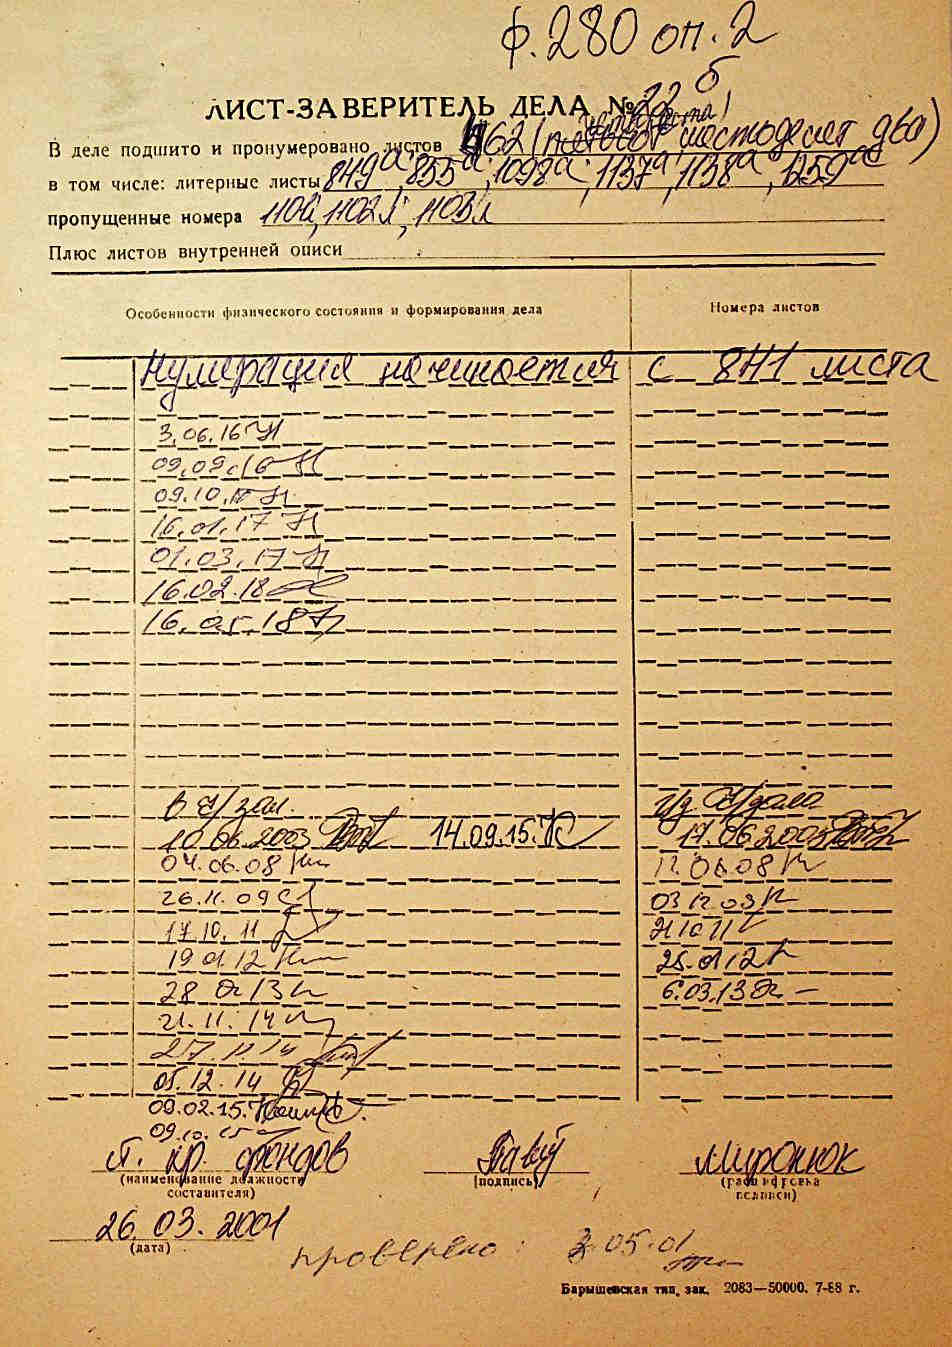 ф. 280 оп. 2
ЛИСТ-ЗАВЕРИТЕЛЬ ДЕЛА № 22 б
В деле подшито и пронумеровано листов 462 (шестьдесят два)
в том числе: литерные листы 849а, 855а, 1098а, 1137а, 1138а, 1259а
пропущенные номера 1101, 1102
Плюс листов внутренней описи
Особенности физического состояния и формирования дела Номера листов
Нумерация начинается с 841 листа
3.06.16
09.09.16
09.10.
16.01.17
01.03.17
16.02.18
16.05.18
в ч/зал. Из ч/зала
10.06.2003 14.09.15. 17.06.2003
04.06.08 17.06.08
26.11.09 03.12.09
17.10.11 21 10 11
19 01.12 25.01.12
28 13 6.03.13
21.11.14
27.11.14
05.12.14
09.02.15.
09.10.15
фондов Миронюк
(наименование должности (подпись) (расшифровка
составителя) подписи)
26.03.2001
(дата)
проверено: 3.05.01
Барышевская тип. зак. 2083—50000. 7-88 г.